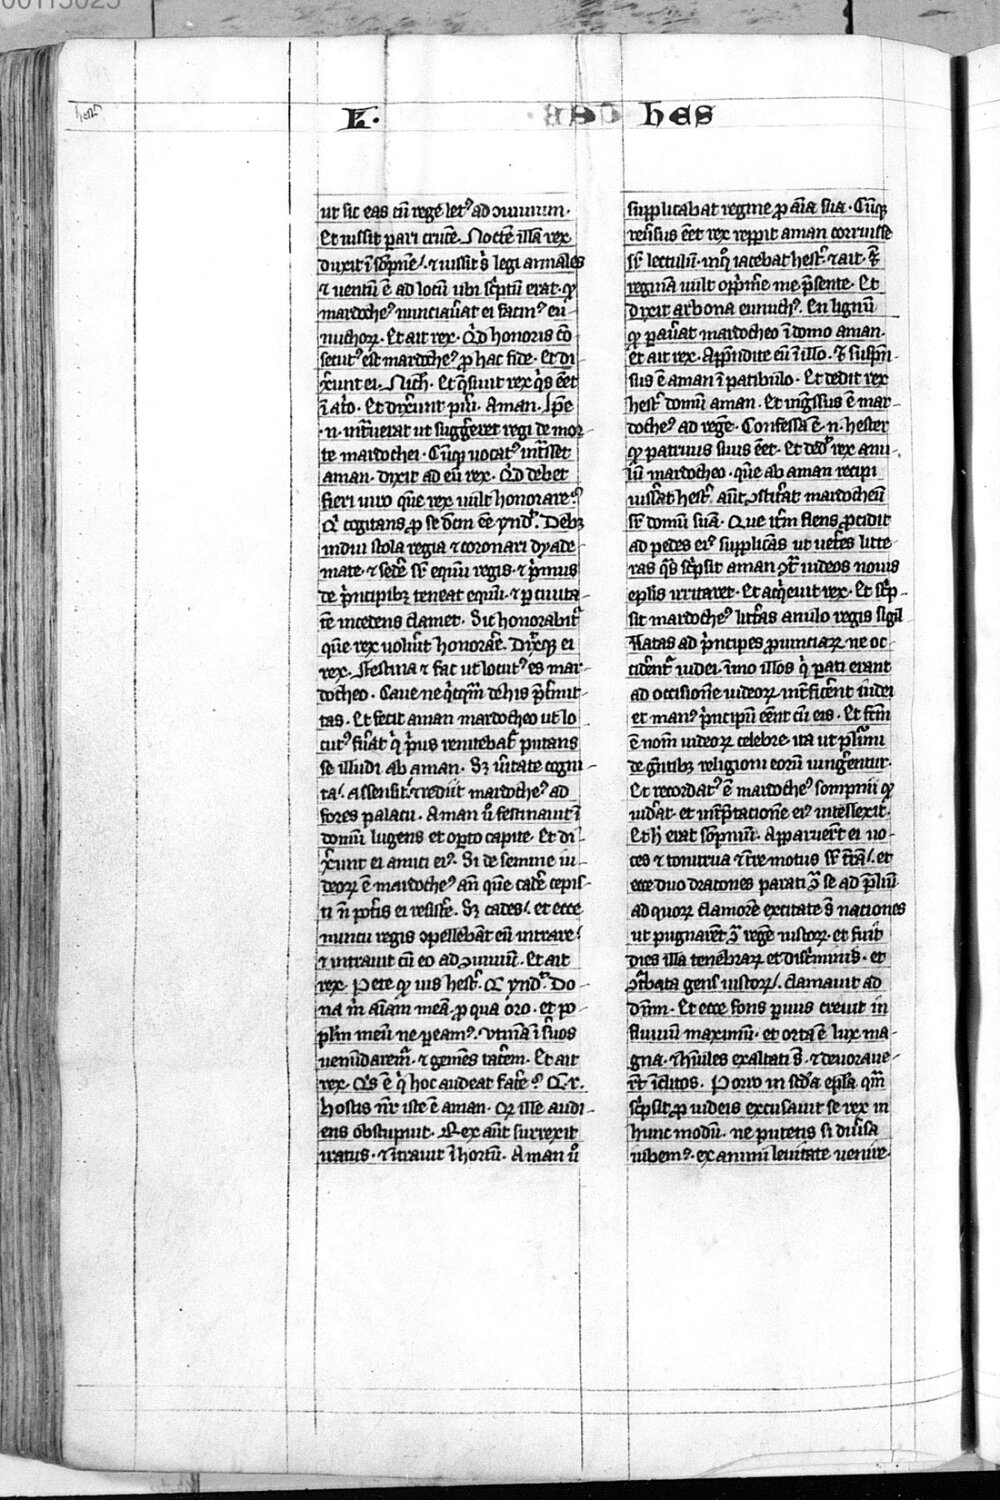 00113023
hest᷑
L· hes
ut sic eas cū rege let⁹ ad ↄuiuium·
Et iussit pari cruce. Nocte illā rex
duxit ī sōpnē/. ⁊ iussit s̉ legi annales
⁊ uentū ē ad locū ubi sc̉ptū erat· qͦ
mardoche⁹ nunciau̓at ei facin⁹ eu-
nuchoꝝ· Et ait rex· Qͥd honoris cō
secut⁹ est mardoche⁹ ꝓ hac fide· Et di-
x̓unt ei· Nich̓· Et q̄siuit rex qͥs eēt
ī at̓o· Et dix̓unt pu̓i· Aman· Ip̄e
·n· int̓uerat ut sugg̓eret regi de mor-
te mardochei· Cūqꝫ uocat⁹ int̓sset
aman· dixit ad eū rex· Qͥd debet
fieri uiro quē rex uult honorare?
Qͥ cogitans ꝓ se dc̄m eē r̄ndͭ· Debꝫ
indui stola regia ⁊ coronari dyade-
mate· ⁊ sedē sr̄ equū regis· ⁊ p̓mus
de p̓ncipibꝫ teneat equū· ⁊ ꝑ ciuita-
tē incedens clamet· Sic honorabit᷑
quē rex uolu̓it honorāe· Dix̓qꝫ ei
rex· Festina ⁊ fac ut locut⁹ es mar-
docheo· Caue ne qͥcq̄m de his p̄t̓mit-
tas· Et fecit aman mardocheo ut lo
cut⁹ fu̓at qͥ p̓us renitebat᷑ putans
se illudi ab aman· Sꝫ u̓itate cogni-
ta/. assensit/. ⁊ rediit mardoche⁹ ad
fores palacii· Aman u̓ festinauit ī
domū lugens et oꝑto capite· Et di-
x̓unt ei amici ei⁹· Si de semine iu-
deoꝝ ē mardoche⁹ an̄ quē cade̓ cepis-
ti n̄ pot̓is ei resiste̓· Sꝫ cades/. et ecce
nuncii regis ↄpellebāt eū intrare/.
⁊ intrauit cū eo ad ↄuiuiū· Et ait
rex· Pete qͦ uis hest᷑· Et r̄ndͭ· Do-
na m̄ aīam meā· ꝓ qua oro· et po-
pl̄m meū ne ꝑeam⁹· Vtinā ī suos
uenūdarem᷑· ⁊ gemēs tac̓em· Et ait
rex· Qͥs ē qͥ hoc audeat face̓? Et r̄·
Hostis nr̄ iste ē aman· Qͥ ille audi-
ens obstupuit· Rex aūt surrexit
iratus· ⁊ īt̓uit ī hortū· Aman u̓
supplicabat regine ꝓ aīa sua· Cūqꝫ
reu̓sus eēt rex reppit aman corruisse
sr̄ lectulū· in qͦ iacebat hest᷑· ⁊ ait· Et
reginā uult opp̓me me p̄sente· Et
dixit arbona eunuch⁹· En lignū
qͦ parau̓at mardocheo ī domo aman·
et ait rex· Appendite eū ī illo· Et suspē-
sus ē aman ī patibulo· Et dedit rex
hest᷑ domū aman· Et ing̓ssus ē mar-
doche⁹ ad regē· Confessa ē ·n· hester
qͦ patruus suus eēt· Et dedͭ rex anu-
lū mardocheo· quē ab aman recipi
iuss̓at hest᷑ aūt ↄstit̓at mardocheū
sr̄ domū suā· Que it̓m flens ꝓcidit
ad pedes ei⁹ supplicās ut uet̓es litte-
ras qͣs sc̓psit aman ↄt̓ iudeos nouis
epl̄is irritaret· Et acq̓euit rex· Et sc̓p-
sit mardoche⁹ litt̓as anulo regis sigil
latas ad p̓ncipes ꝓuinciaꝝ ne oc-
cid̓ent᷑ iudei· īmo illos qͥ pati erant
ad occisionē iudeoꝝ· int̓fic̓ent iudei
et man⁹ p̓ncipū eēnt cū eis· Et fc̄m
ē nom̄ iudeoꝝ celebre· ita ut pl̓imi
de gn̄tibꝫ religioni eorū iung̓entur·
Et recordat⁹ ē mardoche⁹ sompnii qͦ
uid̓at· et int̓p̄tacione ei⁹ intellexit·
Et h̓ erat sōpniū· Apparuer̄t ei uo-
ces ⁊ tonitrua ⁊ t̓re motus sr̄ t̓rā/. et
ecce duo dracones parati ꝯ̄ se ad p̄liū
ad quoꝝ clamorē excitate s̄ nationes
ut pugnarēt ꝯ̄ regē iustoꝝ· et fuit
dies illa tenebraꝝ et disc̓minis· et
ↄt̓bata gens iustoꝝ/. clamauit ad
dn̄m· Et ecce fons paruus creuit in
fluuiū maximū· et orta ē lux ma-
gna· ⁊ hūiles exaltati s̄· ⁊ deuoraue-
rt̄ īclitos· Porro in sc̄da epl̄a qͣm
sc̓psit ꝓ iudeis excusauit se rex in
hunc modū· ne putetis si diu̓sa
iubem⁹· ex animi leuitate uenire·